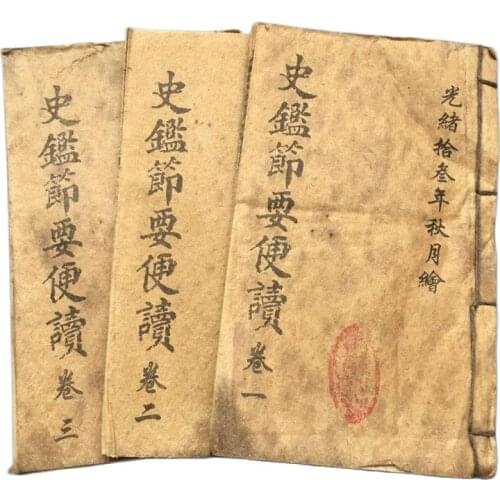 光緒拾叁年秋月繪
史鑑節要便讀 卷一
史鑑節要便讀 卷二
史鑑節要便讀 卷三